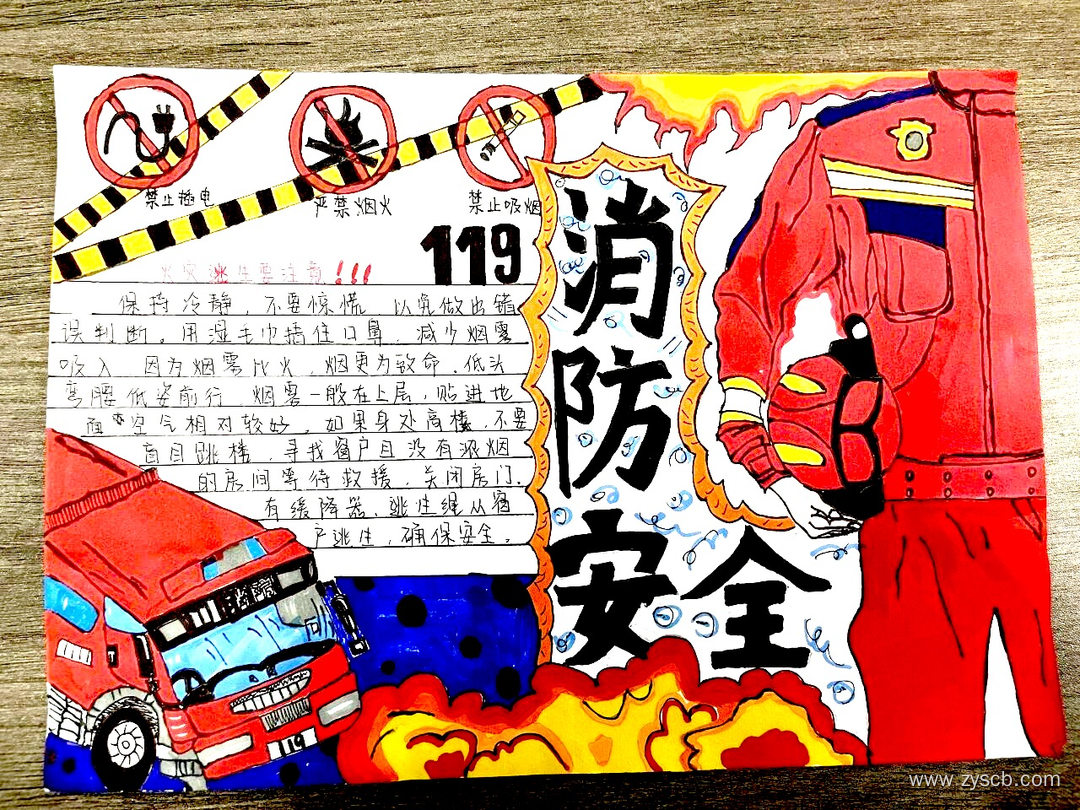 禁止插电
严禁烟火
禁止吸烟
119
火灾逃生要注意!!!
保持冷静 不要惊慌 以免做出错
误判断。用湿毛巾捂住口鼻,减少烟雾
吸入 因为烟雾比火,烟更为致命,低头
弯腰低姿前行,烟雾一般在上层,贴进地
面空气相对较好,如果身处高楼,不要
盲目跳楼,寻找窗户且没有浓烟
的房间等待救援,关闭房门,
有缓降器、逃生绳从窗
户逃生,确保安全。
消
防
安全
消防
119
www.zyscb.com